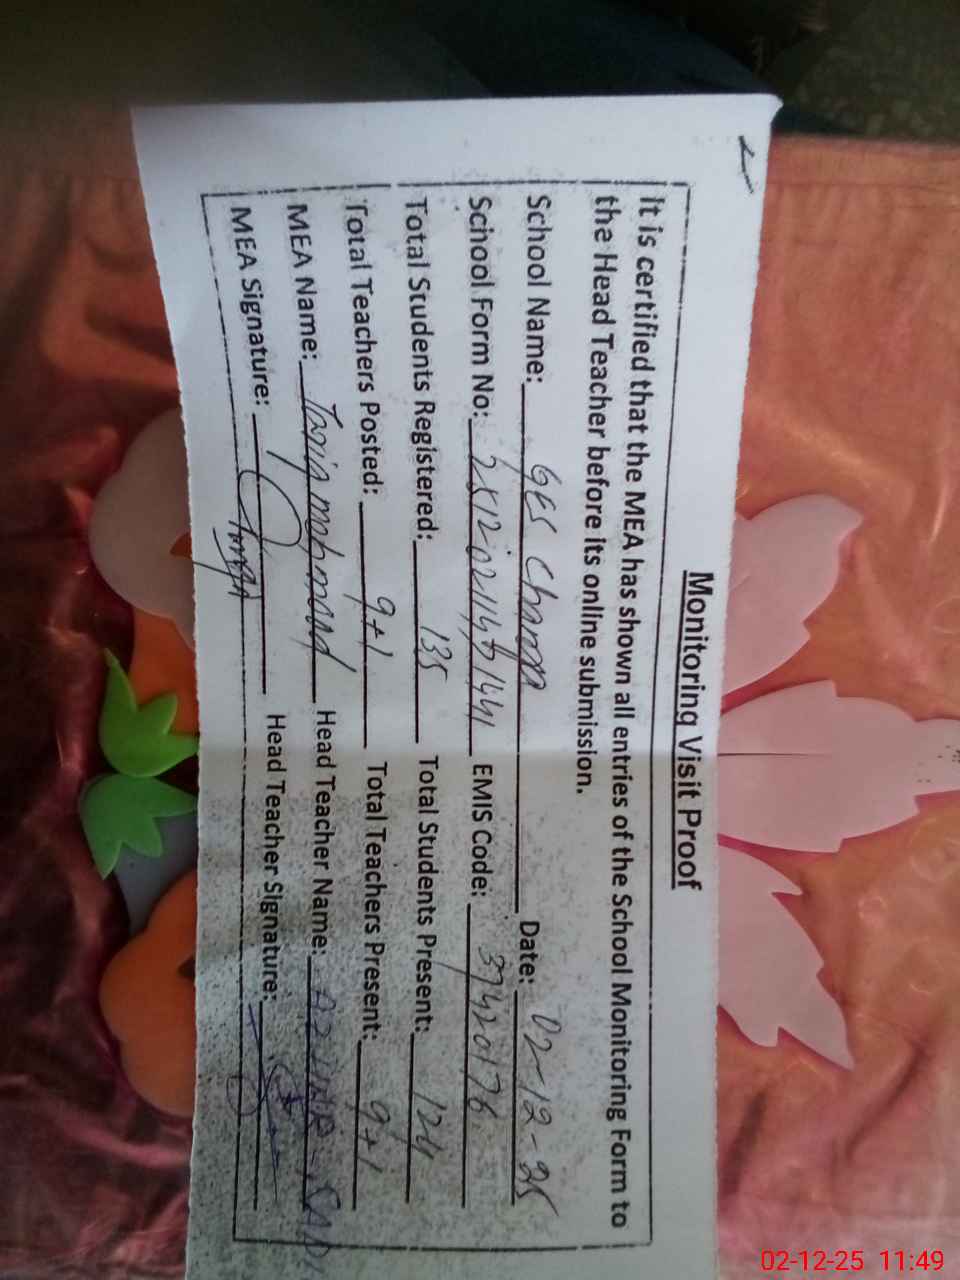 Monitoring Visit Proof
It is certified that the MEA has shown all entries of the School Monitoring Form to
the Head Teacher before its online submission.
School Name: GES Date: 02-12-25
School Form No: EMIS Code: 37420176
Total Students Registered: 135 Total Students Present: 124
Total Teachers Posted: 9+1 Total Teachers Present: 9+1
MEA Name: Tariq mehmood Head Teacher Name:
MEA Signature: Head Teacher Signature:
02-12-25 11:49